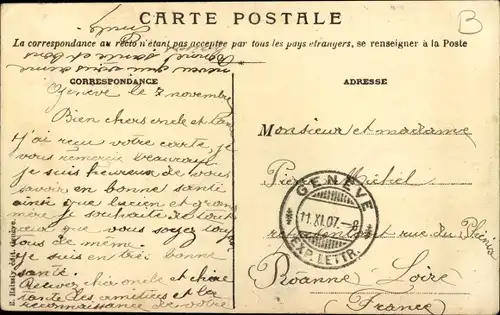 CARTE POSTALE
La correspondance au recto n'étant pas acceptée par tous les pays étrangers, se renseigner à la Poste
B
CORRESPONDANCE
Genève le 7 novembre
Bien chers oncle et
J'ai reçu votre carte, je
vous remercie beaucoup
je suis heureux de vous
savoir en bonne santé
ainsi que Lucien et gran
mère je souhaite de tout
cœur que vous soyez tous
tous de même.
Je suis en très bonne
santé.
Recevez cher oncle et chère
tante les amitiées et la
reconnaissance de votre
ADRESSE
Monsieur et madame
Pierre Michel
rue du Phénix
Roanne Loire
(France)
GENÈVE
11.XI.07.-8
EXP. LETTR.
édit. Genève.